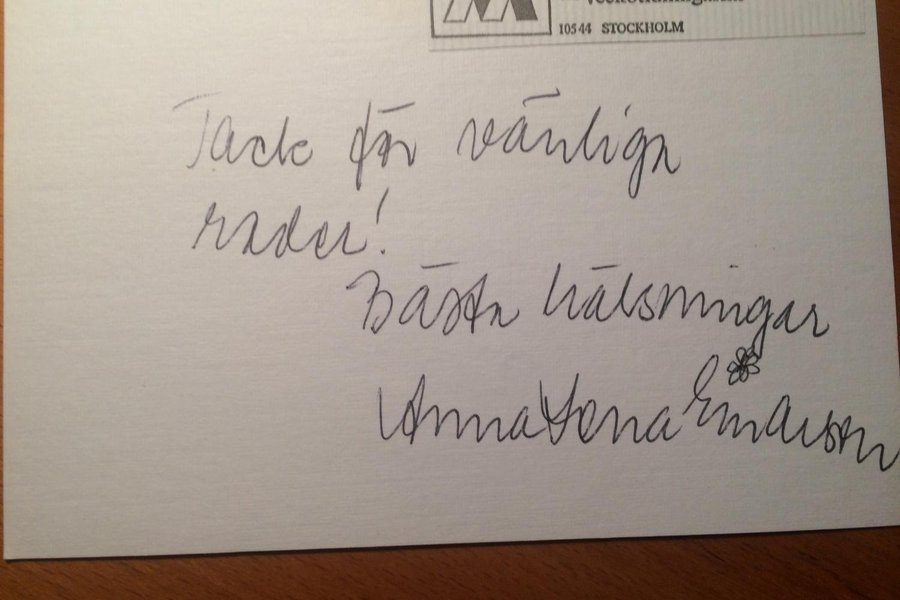 105 44 STOCKHOLM
Tack för vänliga
rader!
Bästa hälsningar
Anna Lena Einarson